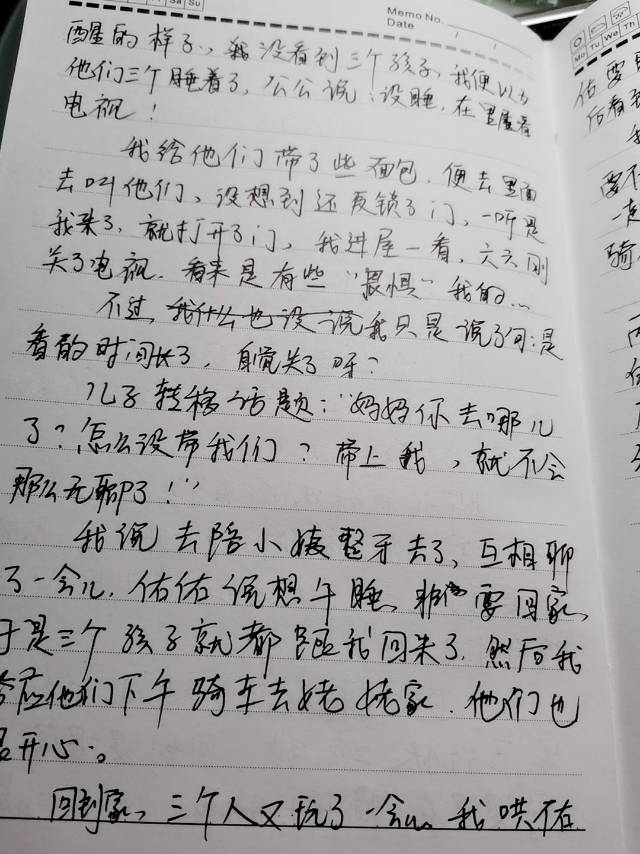 Sa Su
Memo No.
Date / /
Mo Tu We Th
醒的样子，我没看到三个孩子，我便以为
他们三个睡着了，公公说：没睡，在里屋看
电视！
我给他们带了些面包，便去里面
去叫他们，没想到还反锁了门，一听是
我来了，就打开了门，我进屋一看，六六刚
关了电视，看来是有些“畏惧”我的...
不过，我什么也没说我只是说了句：是
看的时间长了，自觉关了呀？
儿子转移话题：“妈妈你去哪儿
了？怎么没带我们？带上我，就不会
那么无聊了！”
我说去陪小姨整牙去了，互相聊
了一会儿，佑佑说想午睡，非要回家，
于是三个孩子就都跟我回来了，然后我
答应他们下午骑车去姥姥家，他们也
是开心。
回到家，三个人又玩了一会儿，我哄佑
佑要
后看
要不
一走
骑